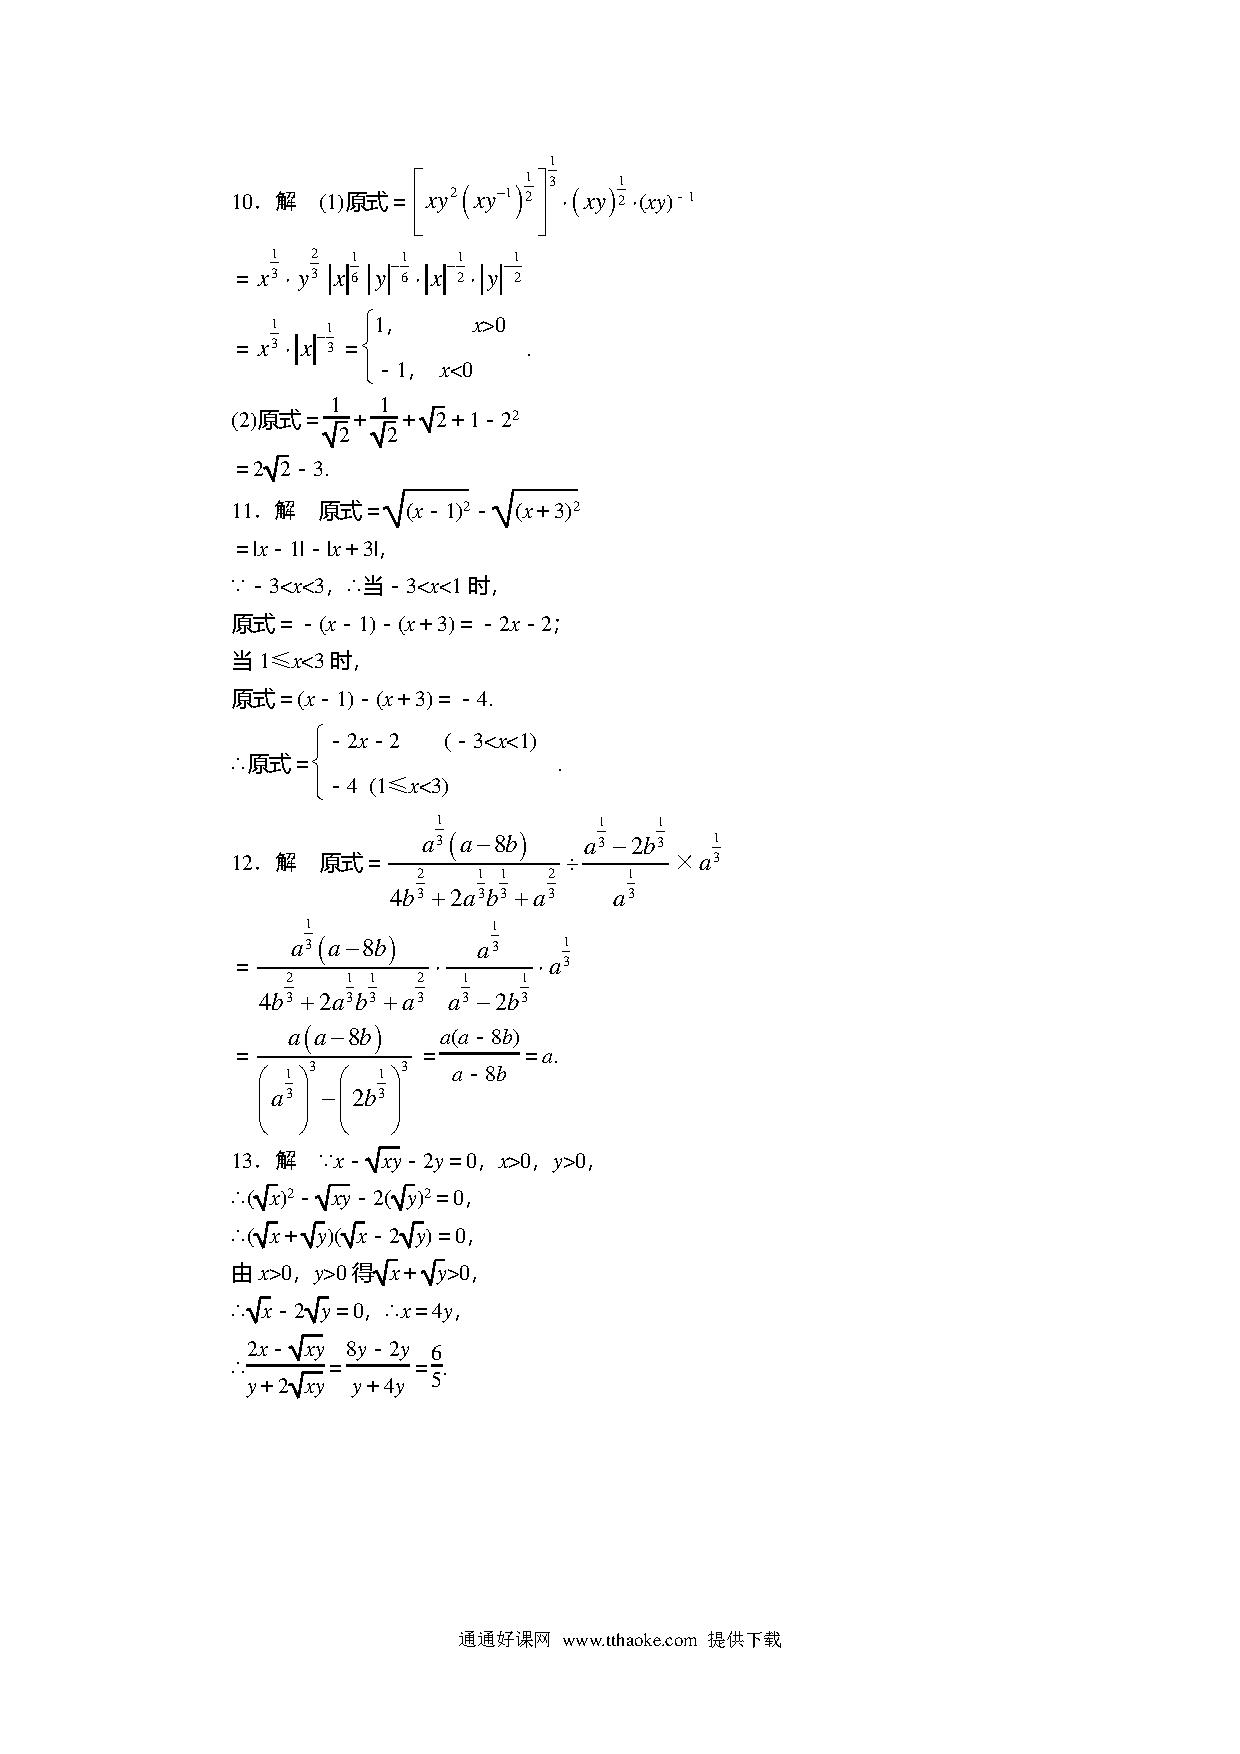 10．解　(1)原式＝[xy²(xy⁻¹)^{1/2}]^{1/3}·(xy)^{1/2}·(xy)⁻¹
＝x^{1/3}·y^{2/3}|x|^{1/6}|y|^{-1/6}·|x|^{-1/2}·|y|^{-1/2}
＝x^{1/3}·|x|^{-1/3}＝{1，　x>0
－1，　x<0 .
(2)原式＝1/√2＋1/√2＋√2＋1－2²
＝2√2－3.
11．解　原式＝√(x－1)²－√(x＋3)²
＝|x－1|－|x＋3|，
∵－3<x<3，∴当－3<x<1 时，
原式＝－(x－1)－(x＋3)＝－2x－2；
当 1≤x<3 时，
原式＝(x－1)－(x＋3)＝－4.
∴原式＝{－2x－2　(－3<x<1)
－4 (1≤x<3) .
12．解　原式＝a^{1/3}(a－8b)/(4b^{2/3}＋2a^{1/3}b^{1/3}＋a^{2/3})÷(a^{1/3}－2b^{1/3})/a^{1/3}×a^{1/3}
＝a^{1/3}(a－8b)/(4b^{2/3}＋2a^{1/3}b^{1/3}＋a^{2/3})·a^{1/3}/(a^{1/3}－2b^{1/3})·a^{1/3}
＝a(a－8b)/((a^{1/3})³－(2b^{1/3})³)＝a(a－8b)/(a－8b)＝a.
13．解　∵x－√xy－2y＝0，x>0，y>0，
∴(√x)²－√xy－2(√y)²＝0，
∴(√x＋√y)(√x－2√y)＝0，
由 x>0，y>0 得√x＋√y>0，
∴√x－2√y＝0，∴x＝4y，
∴(2x－√xy)/(y＋2√xy)＝(8y－2y)/(y＋4y)＝6/5.
通通好课网 www.tthaoke.com 提供下载